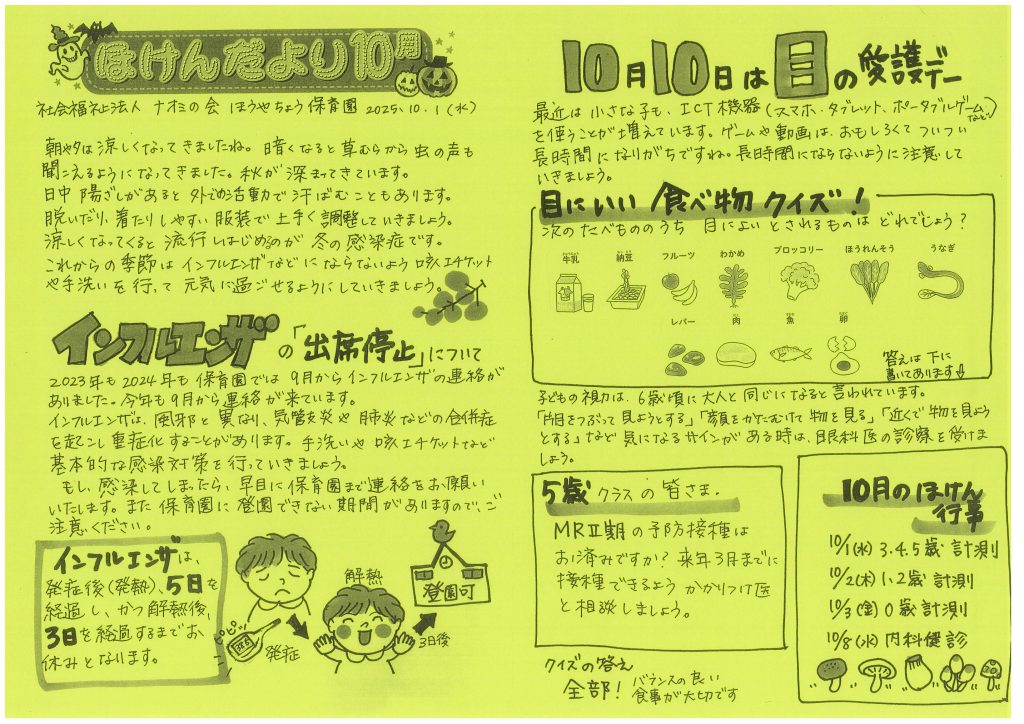 ほけんだより10月
社会福祉法人 ナオミの会 ほうやちょう保育園 2025.10.1(水)
朝夕は涼しくなってきましたね。暗くなると草むらから虫の声も
聞こえるようになってきました。秋が深まってきています。
日中陽ざしがあると外での活動で汗ばむこともあります。
脱いだり、着たりしやすい服装で上手く調整していきましょう。
涼しくなってくると流行しはじめるのが冬の感染症です。
これからの季節はインフルエンザなどにならないよう咳エチケット
や手洗いを行って元気に過ごせるようにしていきましょう。
インフルエンザの「出席停止」について
2023年も2024年も保育園では9月からインフルエンザの連絡が
ありました。今年も9月から連絡が来ています。
インフルエンザは、風邪と異なり、気管支炎や肺炎などの合併症
を起こし重症化することがあります。手洗いや咳エチケットなど
基本的な感染対策を行っていきましょう。
もし、感染してしまったら、早目に保育園まで連絡をお願い
いたします。また保育園に登園できない期間がありますので、ご
注意ください。
インフルエンザは、
発症後(発熱)、5日を
経過し、かつ解熱後、
3日を経過するまでお
休みとなります。
ピピッ
発症
解熱
3日後
登園可
10月10日は目の愛護デー
最近は小さな子も、ICT機器(スマホ・タブレット、ポータブルゲームなど)
を使うことが増えています。ゲームや動画は、おもしろくてついつい
長時間になりがちですね。長時間にならないように注意して
いきましょう。
目にいい食べ物クイズ!
次のたべもののうち 目によいとされるものは どれでしょう?
牛乳 納豆 フルーツ わかめ ブロッコリー ほうれんそう うなぎ
レバー 肉 魚 卵
答えは下に
書いてあります↓
子どもの視力は、6歳頃に大人と同じになると言われています。
「片目をつぶって見ようとする」「顔をかたむけて物を見る」「近くで物を見よう
とする」など気になるサインがある時は、眼科医の診察を受けま
しょう。
5歳クラスの皆さま.
MRⅡ期の予防接種は
お済みですか? 来年3月までに
接種できるよう かかりつけ医
と相談しましょう。
クイズの答え
全部! バランスの良い
食事が大切です
10月のほけん
行事
10/1(水) 3.4.5歳 計測
10/2(木) 1、2歳 計測
10/3(金) 0歳計測
10/8(水) 内科健診